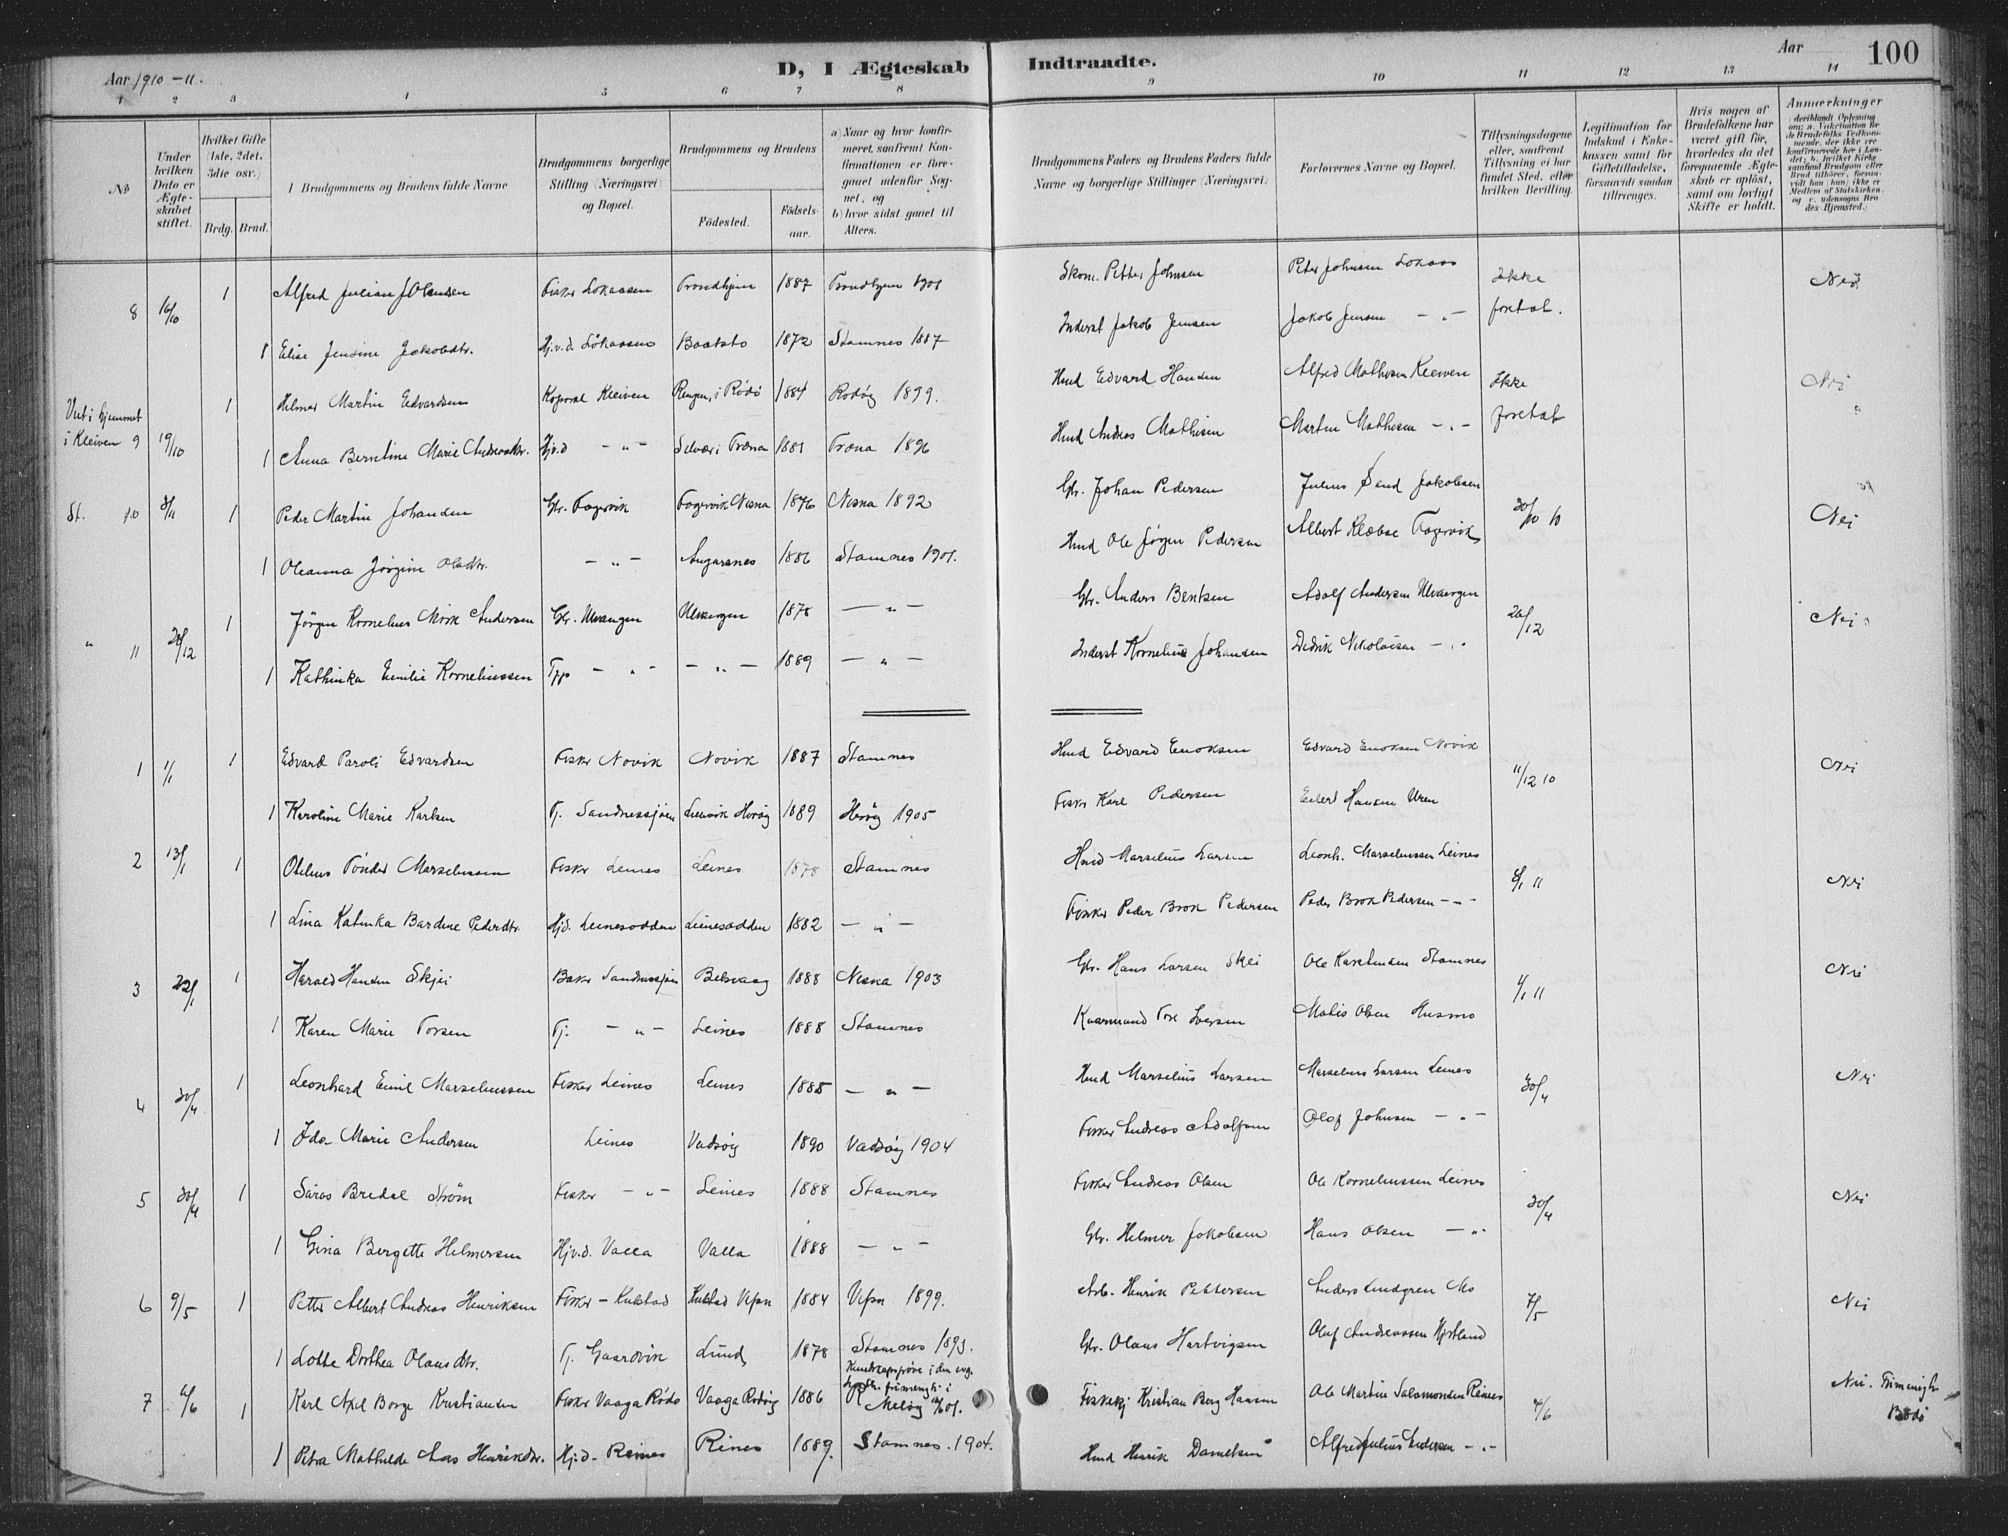 Aar 1910-11.
D, I Ægteskab Indtraadte.
Aar 100
1 2 3 4 5 6 7 8 9 10 11 12 13 14
No
Under hvilken Dato er Ægteskabet stiftet.
Hvilket Gifte (1ste, 2det, 3die osv.)
Brdg. Brud.
Brudgommens og Brudens fulde Navne
Brudgommens borgerlige Stilling (Næringsvei) og Bopæl.
Brudgommens og Brudens
Födested. Födselsaar.
a) Naar og hvor konfirmeret, saafremt Konfirmationen er foregaaet udenfor Sognet, og
b) hvor sidst gaaet til Alters.
Brudgommens Faders og Brudens Faders fulde Navne og borgerlige Stillinger (Næringsvei)
Forlovernes Navne og Bopæl.
Tillysningsdagene eller, saafremt Tillysning ei har fundet Sted, efter hvilken Bevilling.
Legitimation for Indskud i Enkekassen samt for Giftetilladelse, forsaavidt saadan tiltrænges.
Hvis nogen af Brudefolkene har været gift för, hvorledes da det foregaaende Ægteskab er oplöst, samt om lovligt Skifte er holdt.
Anmærkninger
8 16/10 1 Alfred Julian Fisker Lökaasen Trondhjem 1887 Trondhjem 1901 Skom. Petter Johnsen Peter Johnsen Lökaas Ikke Nei
1 Elise Jensine Jakobdtr. Hj.v.d. Lökaasen Baatstö 1872 Stamnes 1887 Inderst Jakob Jensen Jakob Jensen - " - foretat.
Viet i hjemmet 1 Helmer Martin Edvardsen Kleiven i Rödö 1884 Rödöy 1899. Hmd Edvard Hansen Alfred Mathisen Kleiven Ikke Nei
i Kleiven 9 19/10 1 Anna Berntine Marie Andreasdtr. Hjv.d - " - Selvær i Træna 1881 Træna 1896 Hmd Andreas Mathisen Martin Mathisen - " - foretat
St. 10 3/11 1 Peder Martin Johansen Gbr. Fagervik Fagervik Nesna 1876 Nesna 1892 Gbr. Johan Pedersen Julius Sand Jakobsen 30/10 10 Nei
1 Oleanna Jörgine Olsdtr. - " - Angersnes 1886 Stamnes 1901. Hmd Ole Jörgen Pedersen Albert Klæboe Fagervik
" 11 26/12 1 Jörgen Kornelius Mörk Andersen Gbr. Ulvangen Ulvangen 1878 - " - Gbr. Anders Bentsen Adolf Andersen Ulvangen 26/12 Nei
1 Kathinka Emilie Korneliussen - " - - " - 1889 - " - Inderst Kornelius Johansen Didrik Nikolaisen - " -
1 1/1 1 Edvard Paroli Edvardsen Fisker Novik Novik 1887 Stamnes Hmd Edvard Enoksen Edvard Enoksen Novik 11/12 10 Nei
1 Karoline Marie Karlsen Tj. Sandnessjöen Leinvik Heröy 1889 Heröy 1905 Fisker Karl Pedersen Eilert Hansen Uren
2 13/1 1 Otelius Tönder Marseliussen Fisker Leines Leines 1878 Stamnes Hmd Marselius Larsen Leonh. Marseliussen Leines 8/1 11 Nei
1 Lina Katinka Bardine Pederdtr. Hjd. Leinesodden Leinesodden 1882 - " - Fisker Peder Brok Pedersen Peder Brok Pedersen - " -
3 22/1 1 Harald Hansen Skjei Baker Sandnessjöen Belsvaag 1888 Nesna 1903 Gbr. Hans Larsen Skei Ole Karstensen Stamnes 1/1 11 Nei
1 Karen Marie Torsen Tj. - " - Leines 1888 Stamnes Kvarmand Tore Iversen Matis Olsen Husmo
4 30/4 1 Leonhard Emil Marseliussen Fisker Leines Leines 1885 - " - Hmd Marselius Larsen Marselius Larsen Leines 30/4 Nei
1 Ida Marie Andersen Leines Vadsöy 1890 Vadsöy 1904 Fisker Andreas Adolfsen Olaf Johnsen - " -
5 30/4 1 Söros Bredal Ström Fisker - " - Leines 1888 Stamnes Fisker Andreas Olsen Ole Korneliussen Leines 30/4 Nei
1 Gina Bergitte Helmersen Hjv.d. Valla Valla 1888 - " - Gbr. Helmer Jakobsen Hans Olsen - " -
6 9/5 1 Petter Albert Andreas Henriksen Fisker - Kulstad Kulstad Vefsn 1884 Vefsn 1899. Arb. Henrik Pettersen Anders Lundgren Mo 7/5 Nei
1 Lotte Dorthea Olausdtr. Tj. Gaardvik Lund 1878 Stamnes 1893. Gbr. Olaus Hartvigsen Olaf Andreassen Hjertland
7 6/6 1 Karl Axel Borge Kristiansen Fisker Vaaga Rödö Vaaga Rödöy 1886 Kundskapspröve i den evg. luth. frimengh. i Melöy 1901. Kristian Berg Hansen Ole Martin Salomonsen Reines 4/6 Nei. Frimenigh. Bodö
1 Petra Mathilde Aas Henriksdtr. Hj.d. Reines Rines 1889. Stamnes. 1904. Hmd Henrik Danielsen Alfred Julius Andersen - " -